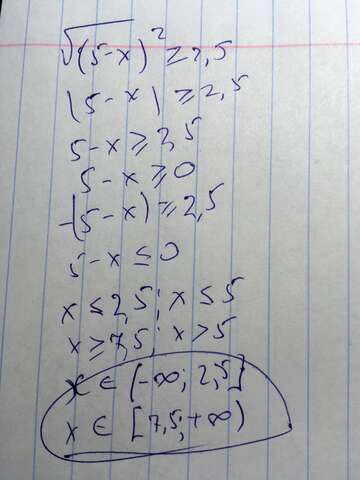 √(5-x)² ≥ 2,5
|5-x| ≥ 2,5
5-x ≥ 2,5
5-x ≥ 0
-(5-x) ≥ 2,5
5-x ≤ 0
x ≤ 2,5; x ≤ 5
x ≥ 7,5; x > 5
x ∈ (-∞; 2,5]
x ∈ [7,5; +∞)